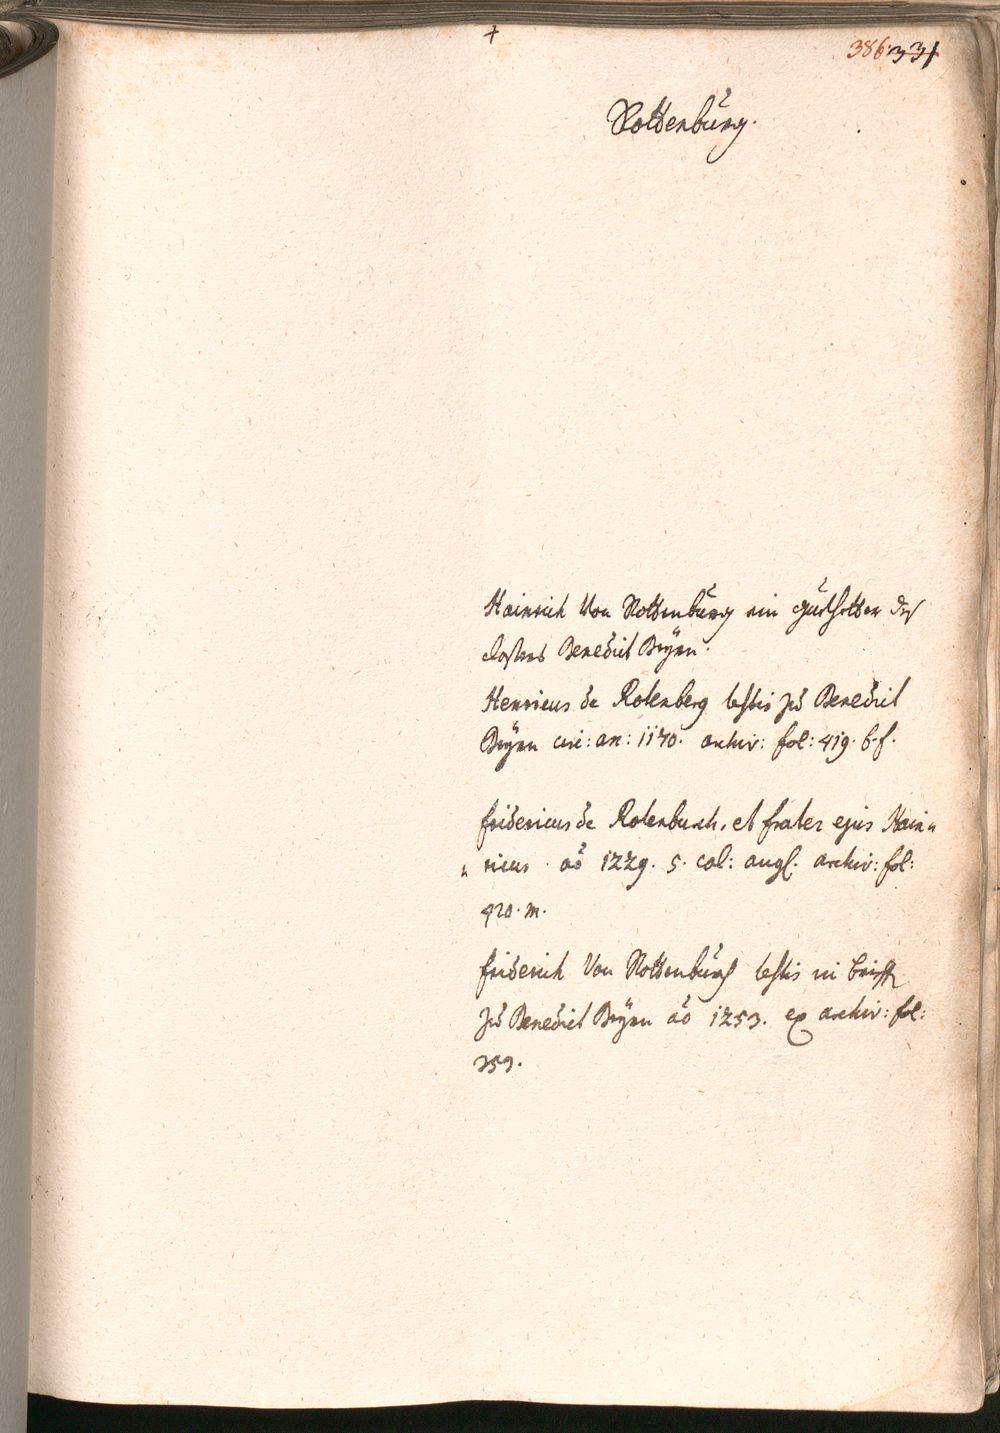 +
386 331
Rottenburg.
Hainrich Von Rottenburg ein gutthetter deß
closters Benedict Beyrn.
Henricus de Rotenberg testis zu Benedict
Beyrn circ: an: 1170. archiv: fol: 419. b. f.
fridericus de Rotenburch, et frater ejus Hain„
„ricus ao 1229. 5. cal: aug. archiv: fol:
420. m.
friderich Von Rottenburg testis in brieff
zu Benedict Beyrn ao 1253. ex archiv: fol:
359.